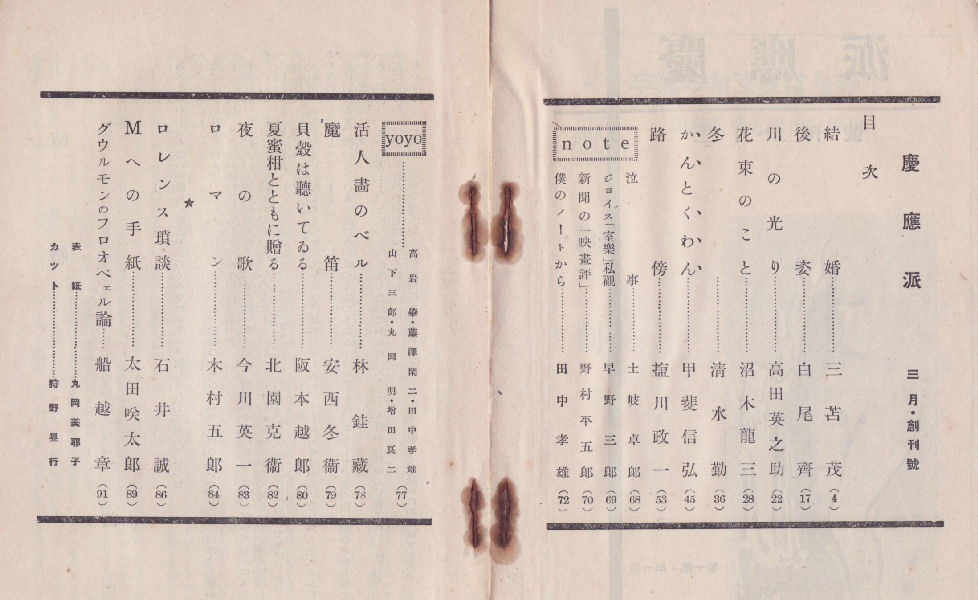 慶應派
三月・創刊號
目次
結婚 三苫茂 (4)
後姿 白尾齊 (17)
川の光り 高田英之助 (22)
花束のこと 沼木龍三 (28)
冬 清水勤 (36)
かんとくわん 甲斐信弘 (45)
路傍 塩川政一 (53)
note
泣事 土岐卓郎 (68)
ジョイス「室樂」私觀 早野三郎 (69)
新聞の「映畫評」 野村平五郎 (70)
僕のノートから 田中孝雄 (72)
yoyo
高岩肇・藤澤閑二・田中孝雄
山下三郎・丸岡明・増田良二 (77)
活人畵のベル 林 藏 (78)
魔笛 安西冬衞 (79)
貝殼は聽いてゐる 阪本越郎 (80)
夏蜜柑とともに贈る 北園克衞 (82)
夜の歌 今川英一 (83)
ロマン 木村五郎 (84)
★
ロレンス瑣談 石井誠 (86)
Mへの手紙 太田咲太郎 (89)
グウルモンのフロオベェル論 船越章 (91)
表紙 丸岡美耶子
カット 狩野晃行